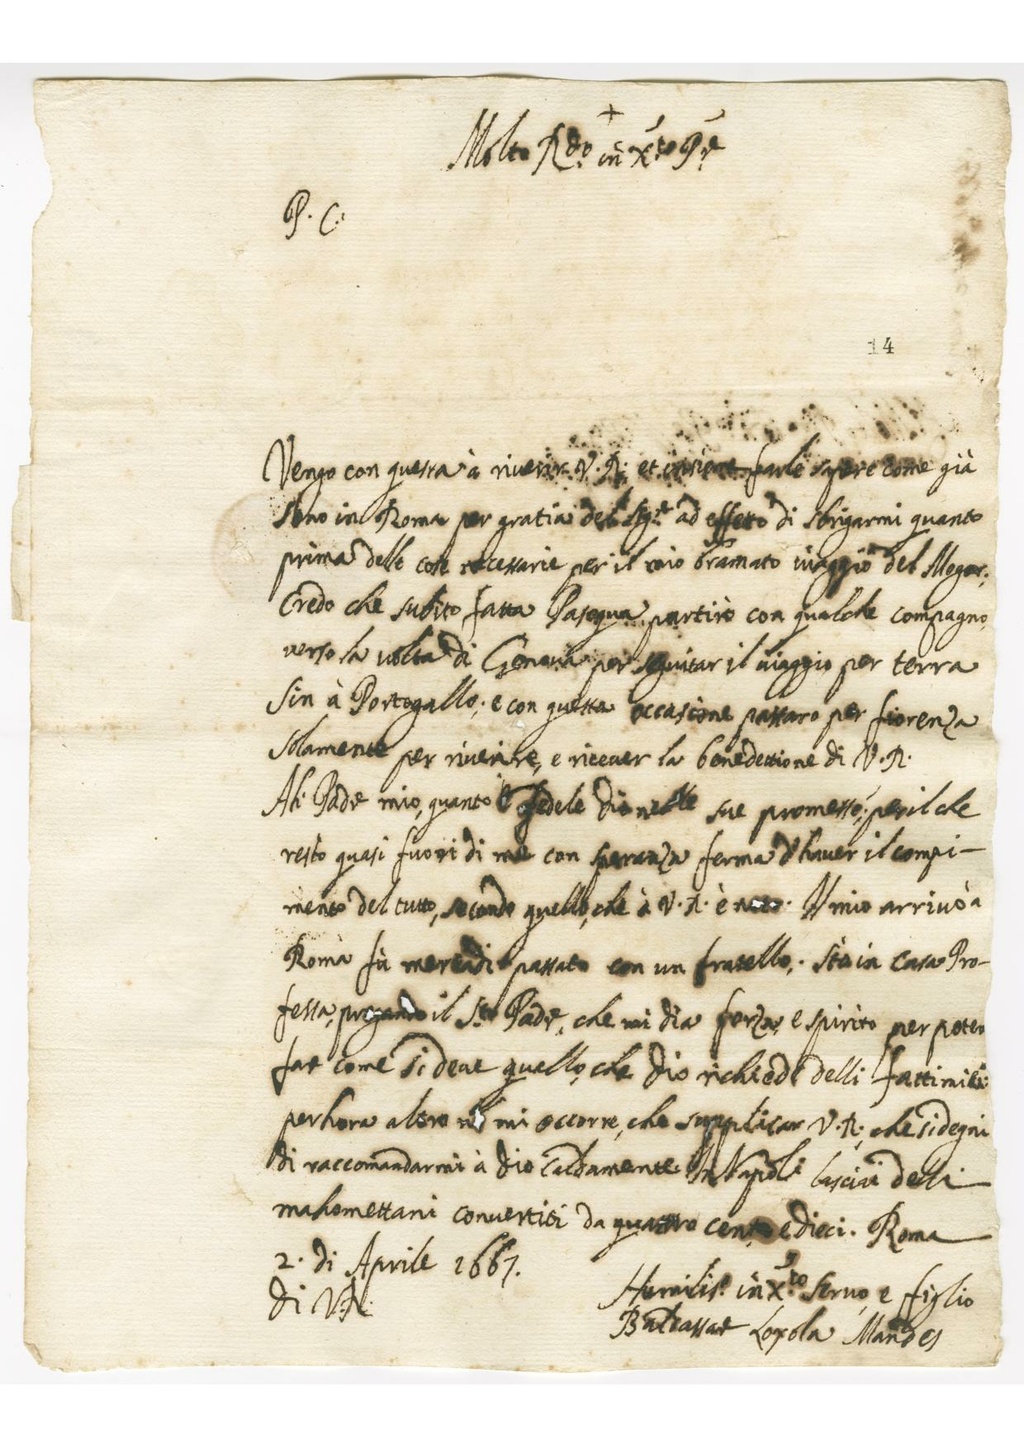 +
Molto Rdo in Xto Pre
P. C.
14
Vengo con questa à riverir V. R. et insieme farle sapere come già
sono in Roma per gratia del Sigre ad effetto di sbrigarmi quanto
prima delle cose necessarie per il mio bramato viaggio del Mogor.
Credo che subito fatta Pasqua partirò con qualche compagno
verso la volta di Genova per seguitar il viaggio per terra
sin à Portogallo; e con questa occasione passaro per fiorenza
solamente per riverire, e ricever la benedettione di V. R.
Ah Padre mio, quanto è fedele Dio nelle sue promesse, per il che
resto quasi fuori di me con speranza ferma d'haver il compi-
mento del tutto, secondo quello, che à V. R. è noto. Il mio arrivo à
Roma fù mercadi passato con un fratello; stò in Casa Pro-
fessa, pregando il Sto Padre, che mi dia forza, e spirito per poter
far come si deve quello, che Dio richiede delli fatti miei
per hora altro nõ mi occorre, che supplicar V. R. che si degni
di raccomandarmi à Dio caldamente. In Napoli lasciai delli
mahomettani convertiti da quattro cento e dieci. Roma
2. di Aprile 1667.
di V. R.
Humiliso in Xto servo, e figlio
Baldassar Loyola Mandes